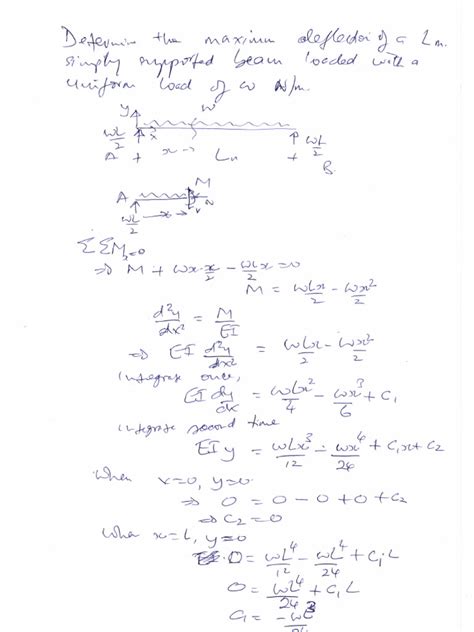 Determine the maximum deflection of a L m.
simply supported beam loaded with a
uniform load of w N/m.
y w
wL/2 x wL/2
A x→ L m B
A M
wL/2 x→ V
ΣΣM=0
⇒ M + wx·x/2 − wLx/2 = 0
M = wLx/2 − wx²/2
d²y/dx² = M/EI
⇒ EI d²y/dx² = wLx/2 − wx²/2
Integrate once,
EI dy/dx = wLx²/4 − wx³/6 + C₁
integrate second time
EI y = wLx³/12 − wx⁴/24 + C₁x + C₂
When x=0, y=0
⇒ 0 = 0 − 0 + 0 + C₂
⇒ C₂ = 0
When x=L, y=0
0 = wL⁴/12 − wL⁴/24 + C₁L
0 = wL⁴/24 + C₁L
C₁ = −wL³/24